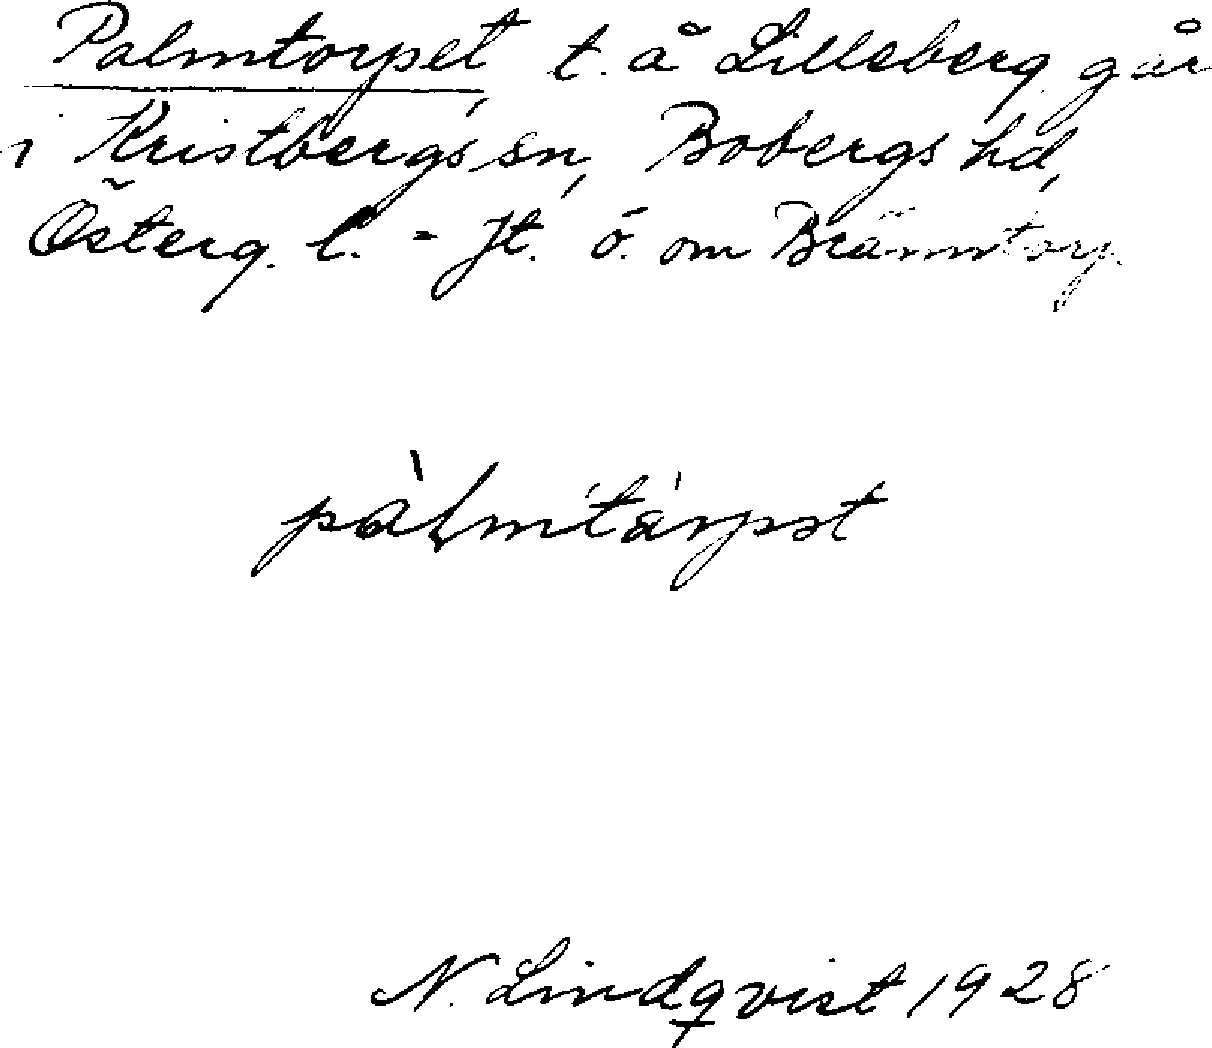 Palmtorpet, t. å Lilleberg går
i Kristbergs sn, Bobergs hd,
Österg. l. - Jt. ö. om Bränntorp.
pàlmtàrpət
N. Lindqvist 1928